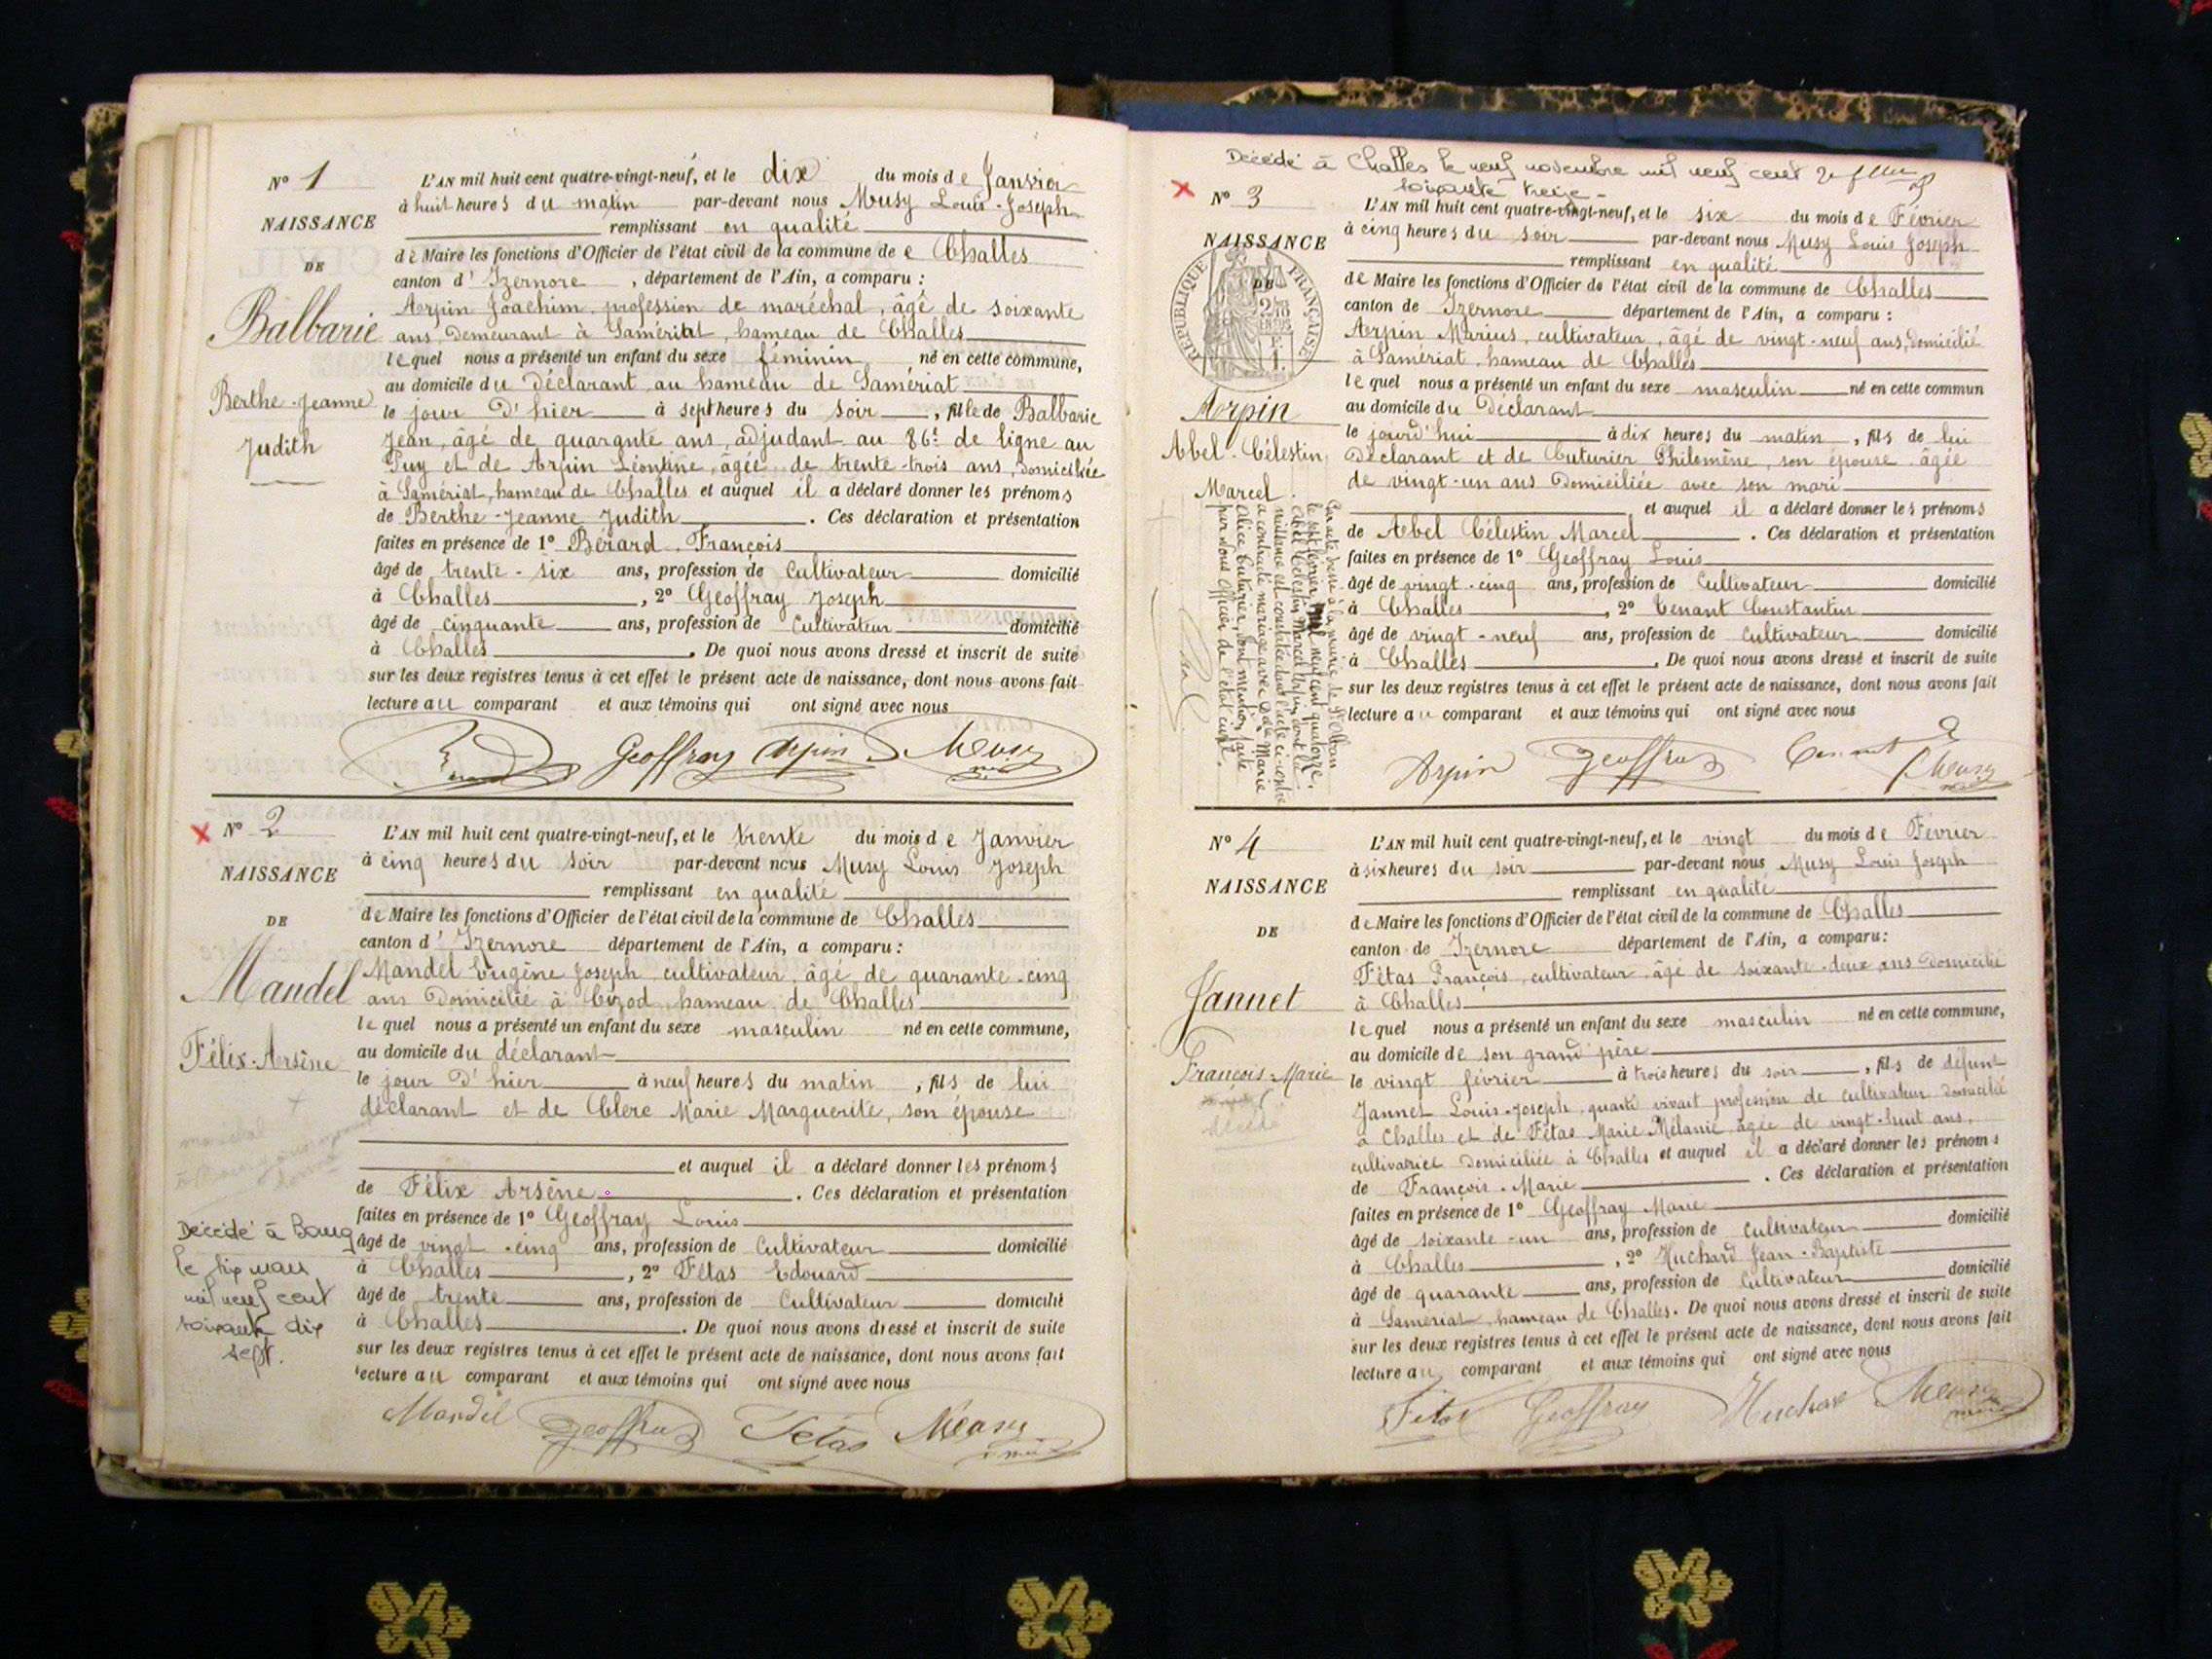 N° 1
NAISSANCE
DE
Balbarie
Berthe-Jeanne
Judith
L'AN mil huit cent quatre-vingt-neuf, et le dix du mois de Janvier
à huit heures du matin par-devant nous Musy Louis-Joseph
remplissant en qualité
de Maire les fonctions d'Officier de l'état civil de la commune de e Challes
canton d'Izernore, département de l'Ain, a comparu :
Arpin Joachim profession de maréchal, âgé de soixante
ans, demeurant à Samériat, hameau de Challes
lequel nous a présenté un enfant du sexe féminin né en cette commune,
au domicile du déclarant au hameau de Samériat
le jour d'hier à sept heures du soir, fille de Balbarie
Jean, âgé de quarante ans, adjudant au 86e de ligne au
Puy et de Arpin Léontine, âgée de trente-trois ans, domiciliée
à Samériat, hameau de Challes et auquel il a déclaré donner les prénoms
de Berthe-Jeanne Judith. Ces déclaration et présentation
faites en présence de 1° Bérard François
âgé de trente-six ans, profession de Cultivateur domicilié
à Challes, 2° Geoffray Joseph
âgé de cinquante ans, profession de Cultivateur domicilié
à Challes. De quoi nous avons dressé et inscrit de suite
sur les deux registres tenus à cet effet le présent acte de naissance, dont nous avons fait
lecture au comparant et aux témoins qui ont signé avec nous
Geoffray Arpin Musy
N° 2
NAISSANCE
DE
Mandel
Félix-Arsène
Décédé à Bourg
le dix mars
mil neuf cent
soixante dix
sept.
L'AN mil huit cent quatre-vingt-neuf, et le trente du mois de Janvier
à cinq heures du soir par-devant nous Musy Louis Joseph
remplissant en qualité
de Maire les fonctions d'Officier de l'état civil de la commune de Challes
canton d'Izernore département de l'Ain, a comparu :
Mandel Eugène Joseph cultivateur, âgé de quarante-cinq
ans Domicilié à Cizod, hameau de Challes
lequel nous a présenté un enfant du sexe masculin né en cette commune,
au domicile du déclarant
le jour d'hier à neuf heures du matin, fils de lui
déclarant et de Clerc Marie Marguerite, son épouse
et auquel il a déclaré donner les prénoms
de Félix Arsène. Ces déclaration et présentation
faites en présence de 1° Geoffray Louis
âgé de vingt-cinq ans, profession de Cultivateur domicilié
à Challes, 2° Fétas Edouard
âgé de trente ans, profession de Cultivateur domicilié
à Challes. De quoi nous avons dressé et inscrit de suite
sur les deux registres tenus à cet effet le présent acte de naissance, dont nous avons fait
lecture au comparant et aux témoins qui ont signé avec nous
Mandel Geoffray Fétas Musy
Décédé à Challes le neuf novembre mil neuf cent
soixante treize
N° 3
NAISSANCE
DE
RÉPUBLIQUE FRANÇAISE
Arpin
Abel-Célestin
Marcel
L'AN mil huit cent quatre-vingt-neuf, et le six du mois de Février
à cinq heures du soir par-devant nous Musy Louis Joseph
remplissant en qualité
de Maire les fonctions d'Officier de l'état civil de la commune de Challes
canton de Izernore département de l'Ain, a comparu :
Arpin Marius, cultivateur, âgé de vingt-neuf ans, domicilié
à Samériat, hameau de Challes
lequel nous a présenté un enfant du sexe masculin né en cette commun
au domicile du Déclarant
le jourd'hui à dix heures du matin, fils de lui
Déclarant et de Cuturier Philomène, son épouse âgée
de vingt-un ans Domiciliée avec son mari
et auquel il a déclaré donner les prénoms
de Abel Célestin Marcel. Ces déclaration et présentation
faites en présence de 1° Geoffray Louis
âgé de vingt-cinq ans, profession de Cultivateur domicilié
à Challes, 2° Tenant Constantin
âgé de vingt-neuf ans, profession de Cultivateur domicilié
à Challes. De quoi nous avons dressé et inscrit de suite
sur les deux registres tenus à cet effet le présent acte de naissance, dont nous avons fait
lecture au comparant et aux témoins qui ont signé avec nous
Par acte dressé à la mairie de St Alban
le sept février mil neuf cent quatorze,
Abel Célestin Marcel Arpin dont la
naissance est constatée dans l'acte ci-contre
a contracté mariage avec Marie
Alice Cuturier, dont mention faite
par nous Officier de l'état civil.
Arpin Geoffray Musy
N° 4
NAISSANCE
DE
Jannet
François-Marie
décédé
L'AN mil huit cent quatre-vingt-neuf, et le vingt du mois de Février
à six heures du soir par-devant nous Musy Louis Joseph
remplissant en qualité
de Maire les fonctions d'Officier de l'état civil de la commune de Challes
canton de Izernore département de l'Ain, a comparu :
Fétas François, cultivateur âgé de soixante-deux ans domicilié
à Challes
lequel nous a présenté un enfant du sexe masculin né en cette commune,
au domicile de son grand père
le vingt février à trois heures du soir, fils de défunt
Jannet Louis-Joseph, quand vivait profession de cultivateur domicilié
à Challes et de Fétas Marie Mélanie âgée de vingt-huit ans,
cultivatrice domiciliée à Challes et auquel il a déclaré donner les prénoms
de François-Marie. Ces déclaration et présentation
faites en présence de 1° Geoffray Marie
âgé de soixante-un ans, profession de Cultivateur domicilié
à Challes, 2° Huchard Jean-Baptiste
âgé de quarante ans, profession de Cultivateur domicilié
à Samériat, hameau de Challes. De quoi nous avons dressé et inscrit de suite
sur les deux registres tenus à cet effet le présent acte de naissance, dont nous avons fait
lecture au comparant et aux témoins qui ont signé avec nous
Fétas Geoffray Huchard Musy